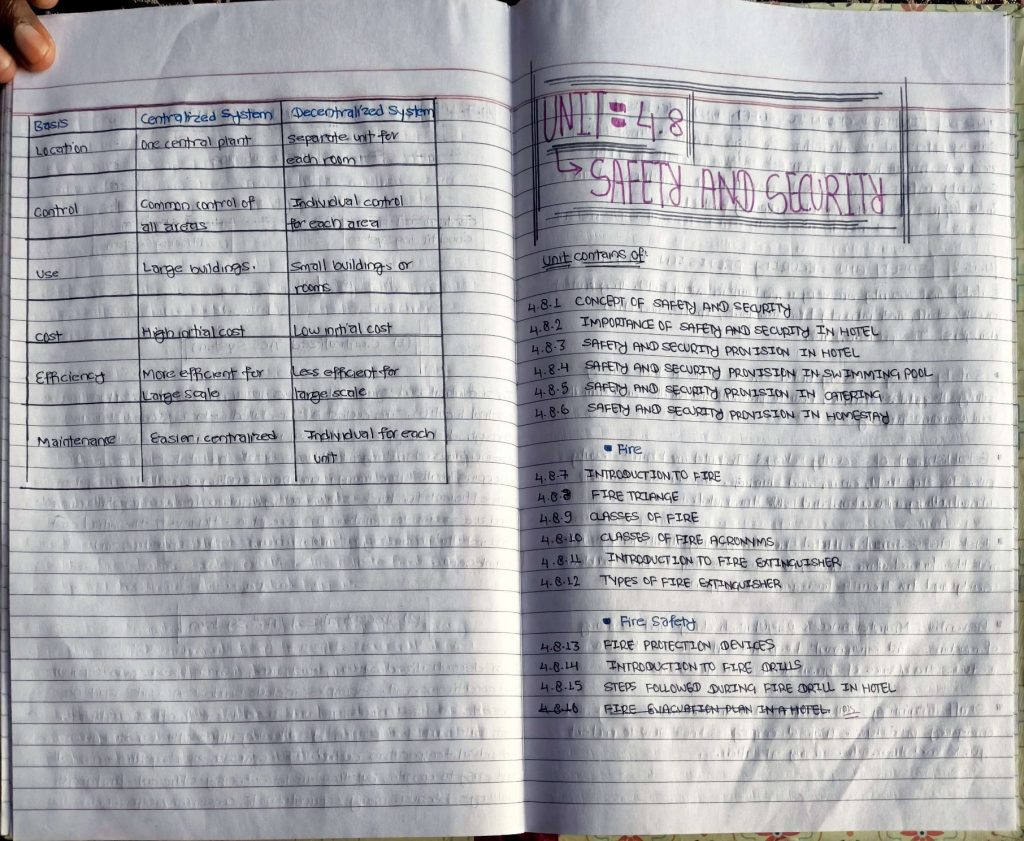 Basis Centralized System Decentralized System
Location One central plant separate unit for
each room
Control Common control of Individual control
all areas for each area
Use Large buildings. Small buildings or
rooms
Cost High initial cost Low initial cost
Efficiency More efficient for Less efficient for
Large scale large scale
Maintenance Easier, centralized Individual for each
unit
UNIT = 4.8
↳ SAFETY AND SECURITY
Unit contains of:
4.8.1 CONCEPT OF SAFETY AND SECURITY
4.8.2 IMPORTANCE OF SAFETY AND SECURITY IN HOTEL
4.8.3 SAFETY AND SECURITY PROVISION IN HOTEL
4.8.4 SAFETY AND SECURITY PROVISION IN SWIMMING POOL
4.8.5 SAFETY AND SECURITY PROVISION IN CATERING
4.8.6 SAFETY AND SECURITY PROVISION IN HOMESTAY
• Fire
4.8.7 INTRODUCTION TO FIRE
4.8.8 FIRE TRIANGE
4.8.9 CLASSES OF FIRE
4.8.10 CLASSES OF FIRE ACRONYMS
4.8.11 INTRODUCTION TO FIRE EXTINGUISHER
4.8.12 TYPES OF FIRE EXTINGUISHER
• Fire Safety
4.8.13 FIRE PROTECTION DEVICES
4.8.14 INTRODUCTION TO FIRE DRILLS
4.8.15 STEPS FOLLOWED DURING FIRE DRILL IN HOTEL
4.8.16 FIRE EVACUATION PLAN IN A HOTEL.